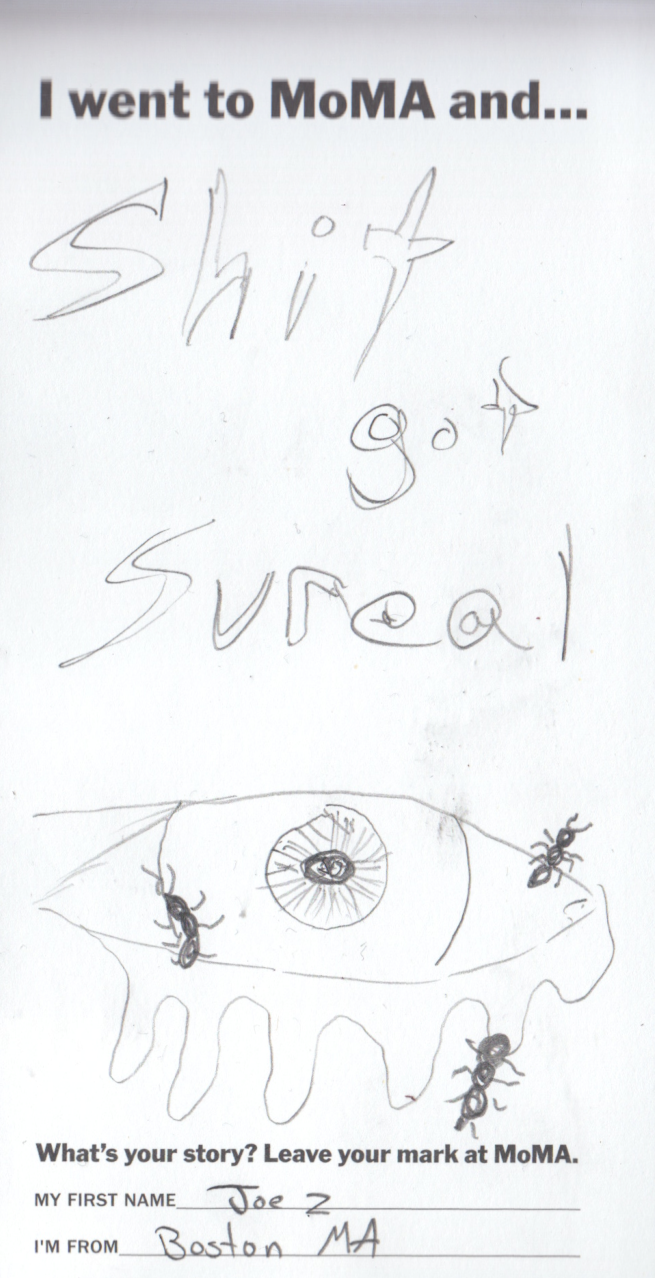 I went to MoMA and...
Shit
got
Sureal
What's your story? Leave your mark at MoMA.
MY FIRST NAME Joe Z
I'M FROM Boston MA